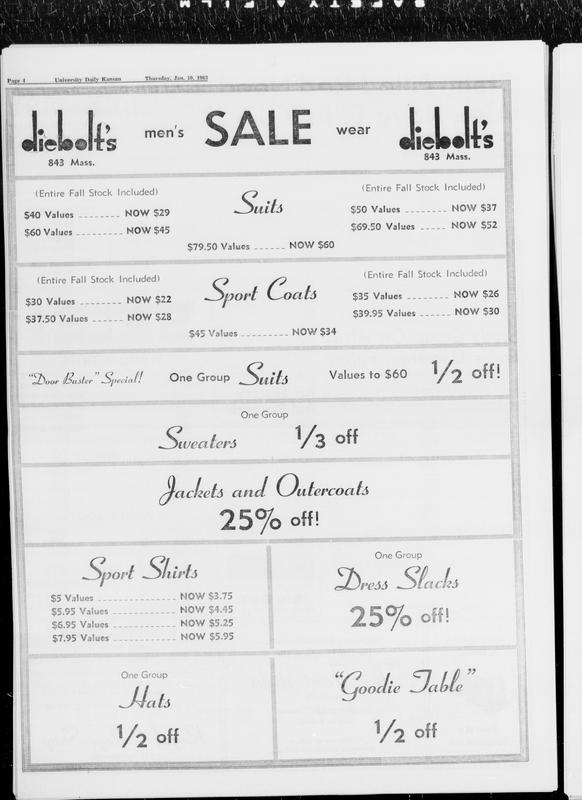 Page 4 University Daily Kansan Thursday, Jan. 10, 1963
diebolt's men's SALE wear diebolt's
843 Mass. 843 Mass.
(Entire Fall Stock Included)
$40 Values NOW $29
$60 Values NOW $45
Suits
$79.50 Values NOW $60
(Entire Fall Stock Included)
$50 Values NOW $37
$69.50 Values NOW $52
(Entire Fall Stock Included)
$30 Values NOW $22
$37.50 Values NOW $28
Sport Coats
$45 Values NOW $34
(Entire Fall Stock Included)
$35 Values NOW $26
$39.95 Values NOW $30
"Door Buster" Special! One Group Suits Values to $60 1/2 off!
One Group
Sweaters 1/3 off
Jackets and Outercoats
25% off!
Sport Shirts
$5 Values NOW $3.75
$5.95 Values NOW $4.45
$6.95 Values NOW $5.25
$7.95 Values NOW $5.95
One Group
Dress Slacks
25% off!
One Group
Hats
1/2 off
"Goodie Table"
1/2 off